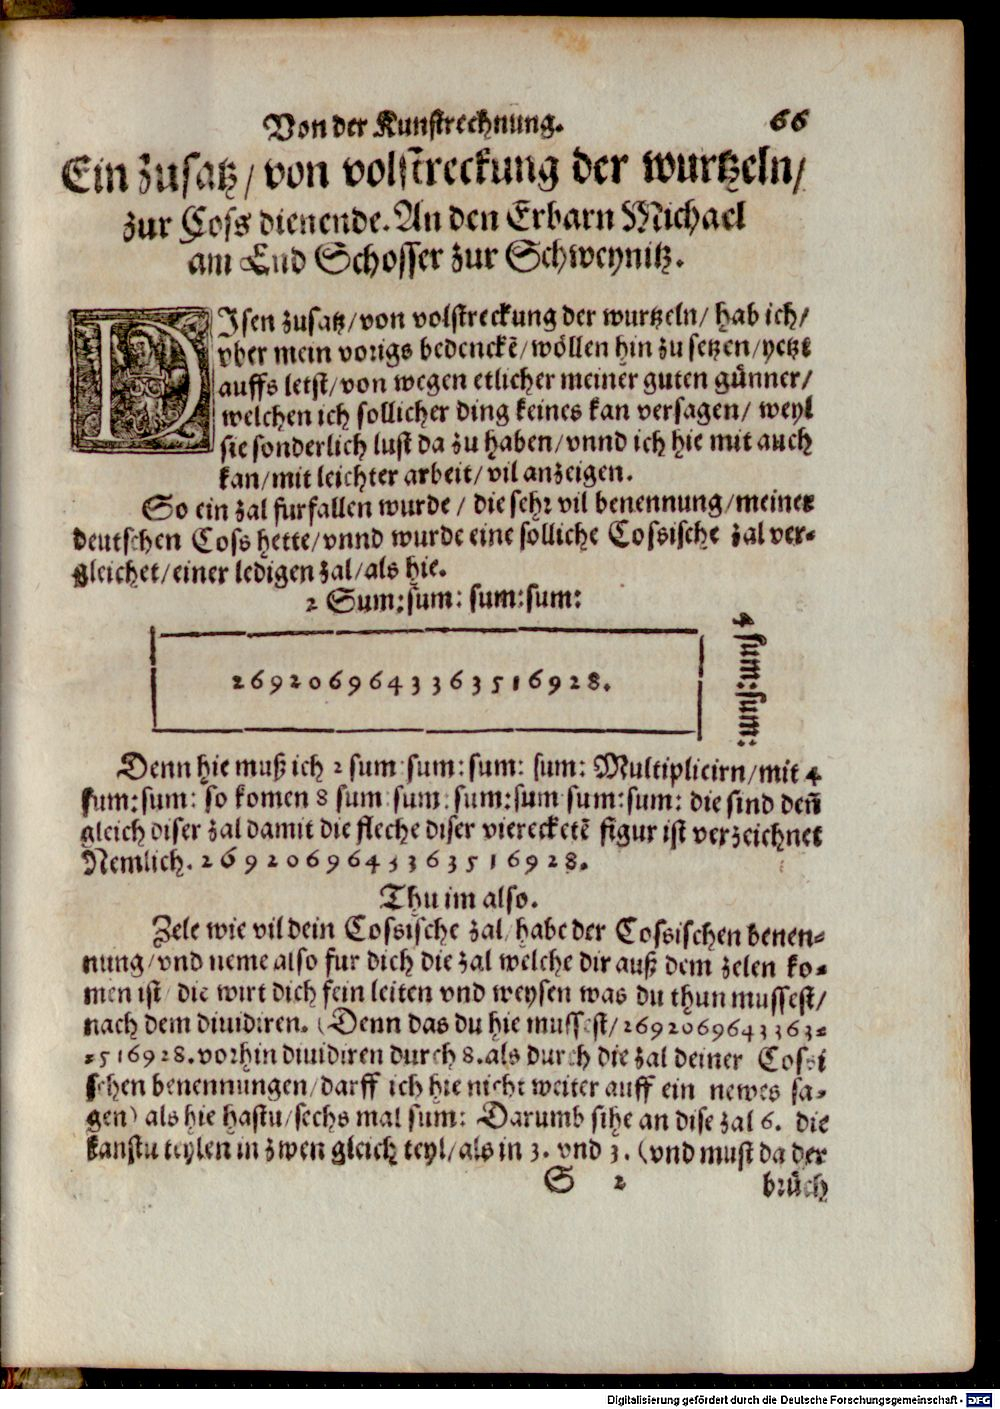 Von der Kunstrechnung. 66
Ein zusatz/ von volstreckung der wurtzeln/
zur Coss dienende. An den Erbarn Michael
am End Schosser zur Schweynitz.
DIsen zusatz/ von volstreckung der wurtzeln/ hab ich/
vber mein vorigs bedenckē/ wöllen hin zu setzen/ yetzt
auffs letst/ von wegen etlicher meiner guten günner/
welchen ich sollicher ding keines kan versagen/ weyl
sie sonderlich lust da zu haben/ vnnd ich hie mit auch
kan/ mit leichter arbeit/ vil anzeigen.
So ein zal furfallen wurde / die sehr vil benennung/ meiner
deutschen Coss hette/ vnnd wurde eine solliche Cossische zal ver-
gleichet/ einer ledigen zal/ als hie.
2 Sum: sum: sum: sum:
4 sum: sum:
2692069643363516928.
Denn hie muß ich 2 sum sum: sum: sum: Multiplicirn/ mit 4
sum: sum: so komen 8 sum sum: sum: sum sum: sum: die sind deñ
gleich diser zal damit die fleche diser vierecketē figur ist verzeichnet
Nemlich. 2692069643363516928.
Thu im also.
Zele wie vil dein Cossische zal/ habe der Cossischen benen-
nung/ vnd neme also fur dich die zal welche dir auß dem zelen ko-
men ist/ die wirt dich fein leiten vnd weysen was du thun mussest/
nach dem diuidiren. (Denn das du hie mussest/ 2692069643363-
-516928. vorhin diuidiren durch 8. als durch die zal deiner Cossi
schen benennungen/ darff ich hie nicht weiter auff ein newes sa-
gen) als hie hastu/ sechs mal sum: Darumb sihe an dise zal 6. die
kanstu teylen in zwen gleich teyl/ als in 3. vnd 3. (vnd must da der
S 2 brüch
Digitalisierung gefördert durch die Deutsche Forschungsgemeinschaft - DFG